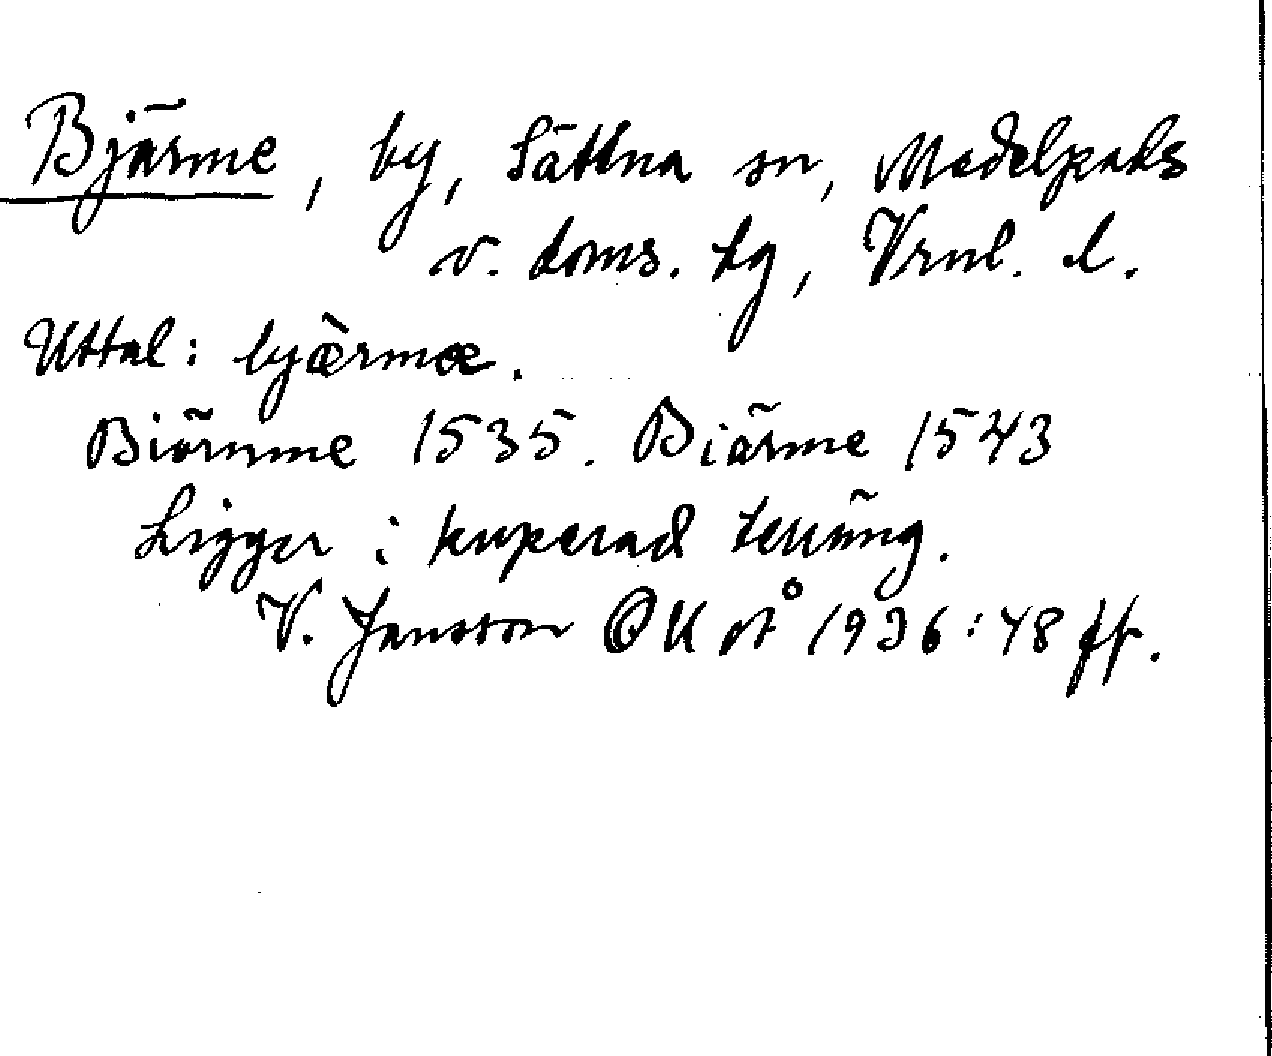 Bjärme, by, Sättna sn, Medelpads
v. doms. tg, Vrnl. l.
Uttal: bjæ̀rmæ.
Biörmme 1535. Biärme 1543
Ligger i kuperad terräng.
V. Jansson OK o Å 1936:48 ff.